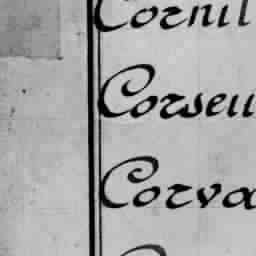 Cornil
Corseu
Corva